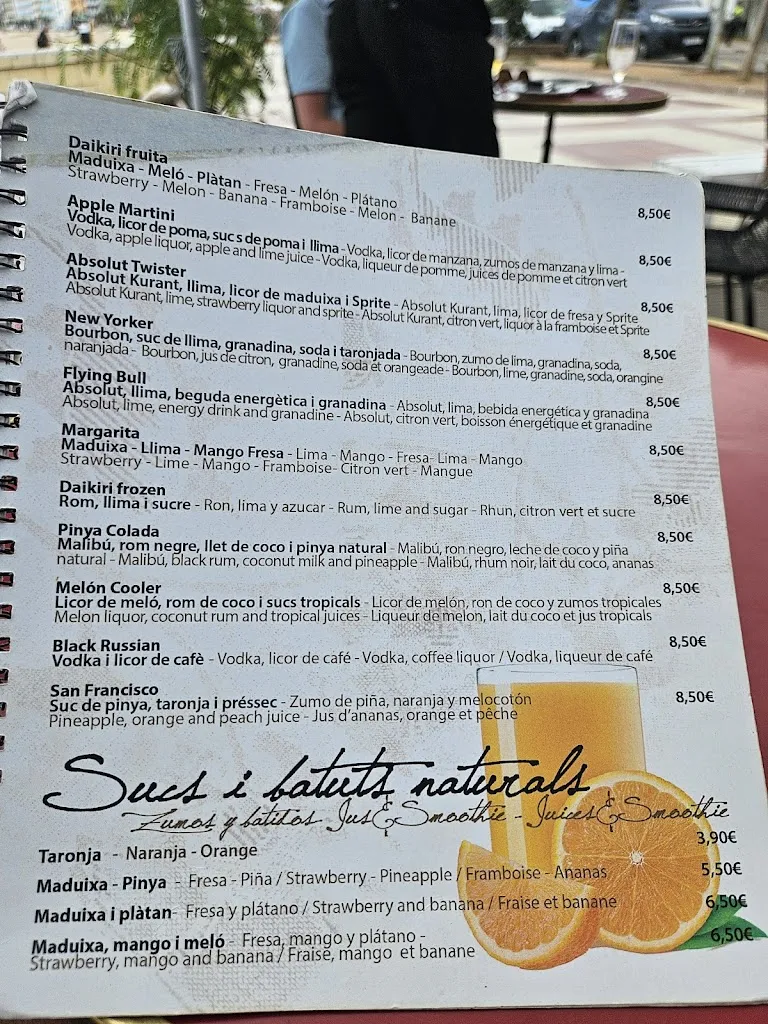 Daikiri fruita
Maduixa - Meló - Plàtan - Fresa - Melón - Plátano
Strawberry - Melon - Banana - Framboise - Melon - Banane
8,50€
Apple Martini
Vodka, licor de poma, sucs de poma i llima - Vodka, licor de manzana, zumos de manzana y lima -
Vodka, apple liquor, apple and lime juice - Vodka, liqueur de pomme, juices de pomme et citron vert
8,50€
Absolut Twister
Absolut Kurant, llima, licor de maduixa i Sprite - Absolut Kurant, lima, licor de fresa y Sprite
Absolut Kurant, lime, strawberry liquor and sprite - Absolut Kurant, citron vert, liquor à la framboise et Sprite
8,50€
New Yorker
Bourbon, suc de llima, granadina, soda i taronjada - Bourbon, zumo de lima, granadina, soda,
naranjada - Bourbon, jus de citron, granadine, soda et orangeade - Bourbon, lime, granadine, soda, orangine
8,50€
Flying Bull
Absolut, llima, beguda energètica i granadina - Absolut, lima, bebida energética y granadina
Absolut, lime, energy drink and granadine - Absolut, citron vert, boisson énergétique et granadine
8,50€
Margarita
Maduixa - Llima - Mango Fresa - Lima - Mango - Fresa- Lima - Mango
Strawberry - Lime - Mango - Framboise- Citron vert - Mangue
8,50€
Daikiri frozen
Rom, llima i sucre - Ron, lima y azucar - Rum, lime and sugar - Rhun, citron vert et sucre
8,50€
Pinya Colada
Malibú, rom negre, llet de coco i pinya natural - Malibú, ron negro, leche de coco y piña
natural - Malibú, black rum, coconut milk and pineapple - Malibú, rhum noir, lait du coco, ananas
8,50€
Melón Cooler
Licor de meló, rom de coco i sucs tropicals - Licor de melón, ron de coco y zumos tropicales
Melon liquor, coconut rum and tropical juices - Liqueur de melon, lait du coco et jus tropicais
8,50€
Black Russian
Vodka i licor de cafè - Vodka, licor de café - Vodka, coffee liquor / Vodka, liqueur de café
8,50€
San Francisco
Suc de pinya, taronja i préssec - Zumo de piña, naranja y melocotón
Pineapple, orange and peach juice - Jus d'ananas, orange et pêche
8,50€
Sucs i batuts naturals
Zumos y batidos - Jus & Smoothie - Juices & Smoothie
Taronja - Naranja - Orange
3,90€
Maduixa - Pinya - Fresa - Piña / Strawberry - Pineapple / Framboise - Ananas
5,50€
Maduixa i plàtan- Fresa y plátano / Strawberry and banana / Fraise et banane
6,50€
Maduixa, mango i meló - Fresa, mango y plátano -
Strawberry, mango and banana / Fraise, mango et banane
6,50€